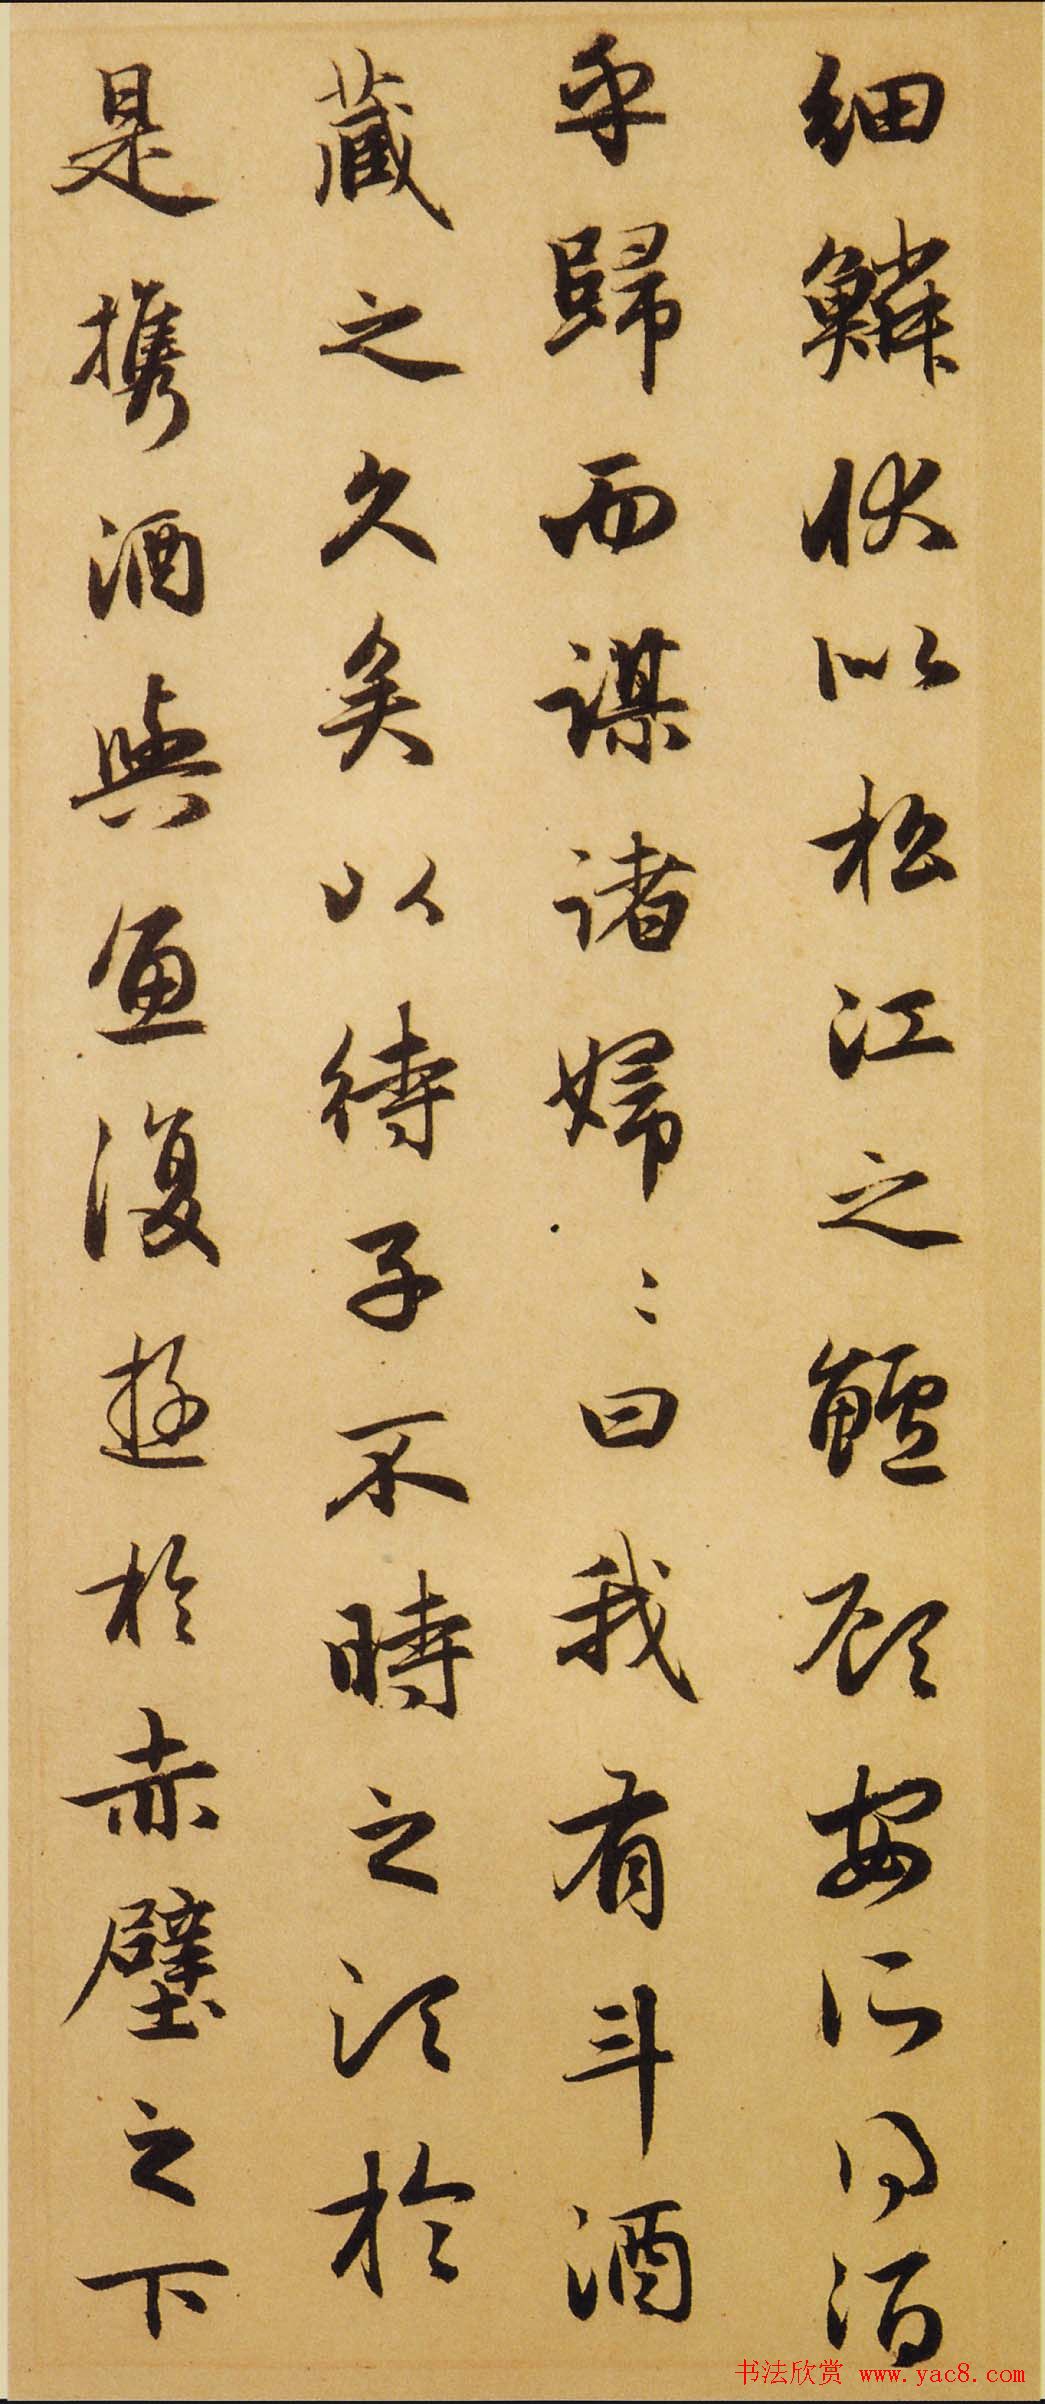 細鱗狀似松江之鱸顧安所得酒
乎歸而謀諸婦〻曰我有斗酒
藏之久矣以待子不時之須於
是携酒與魚復遊於赤壁之下
书法欣赏 www.yac8.com